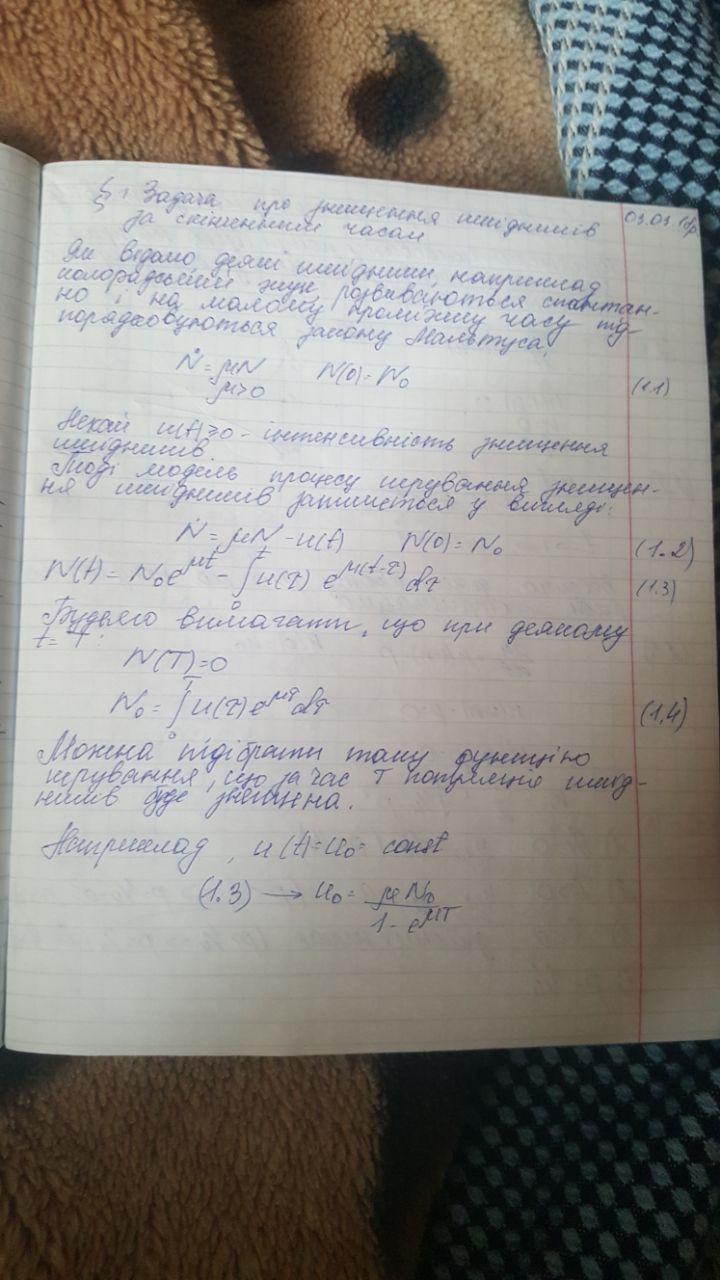 § 1 Задача про знищення шкідників 03.03.
за скінченний час
Як відомо деякі шкідники, наприклад
колорадський жук розвиваються спонтан-
но і на малому проміжку часу під-
порядковуються закону Мальтуса:
Ṅ = μN N(0) = N₀
μ>0 (1.1)
Нехай u(t)≥0 - інтенсивність знищення
шкідників.
Тоді модель процесу керування знищен-
ня шкідників запишеться у вигляді:
Ṅ = μN - u(t) N(0) = N₀ (1.2)
N(t) = N₀e^{μt} - ∫₀ᵗ u(τ) e^{μ(t-τ)}dτ (1.3)
Будемо вимагати, що при деякому
t = T:
N(T)=0
N₀ = ∫₀ᵀ u(τ) e^{μτ}dτ (1.4)
Можна підібрати таку функцію
керування, що за час T популяція шкід-
ників буде знищена.
Наприклад, u(t)=u₀= const
(1.3) → u₀ = μN₀ / (1 - e^{μT})